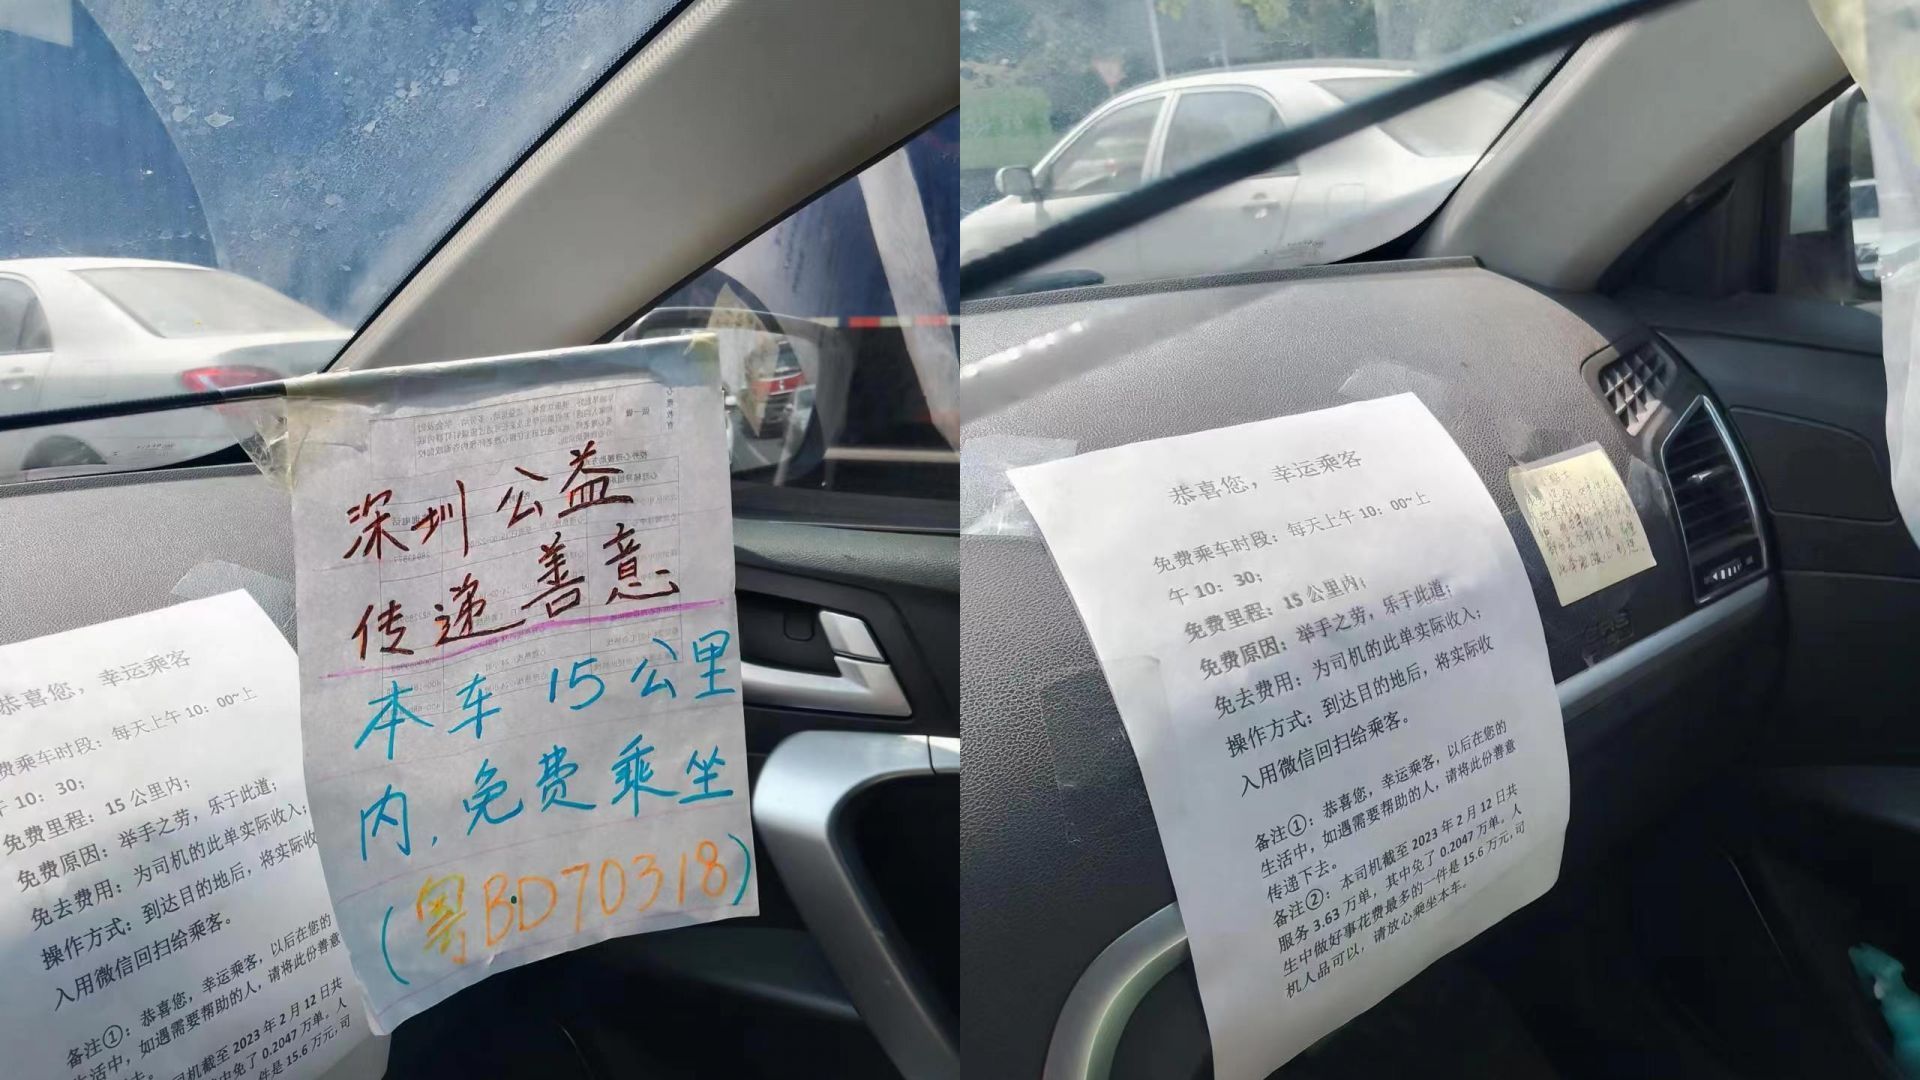 深圳公益
传递善意
本车15公里
内，免费乘坐
（粤BD70318）
恭喜您，幸运乘客
费乘车时段：每天上午10：00~上
午10：30；
免费里程：15公里内；
免费原因：举手之劳，乐于此道；
免去费用：为司机的此单实际收入；
操作方式：到达目的地后，将实际收
入用微信回扫给乘客。
备注①：恭喜您，幸运乘客，以后在您的
生活中，如遇需要帮助的人，请将此份善意
司机截至2023年2月12日共
中免了0.2047万单。人
件是15.6万元，司
恭喜您，幸运乘客
免费乘车时段：每天上午10：00~上
午10：30；
免费里程：15公里内；
免费原因：举手之劳，乐于此道；
免去费用：为司机的此单实际收入；
操作方式：到达目的地后，将实际收
入用微信回扫给乘客。
备注①：恭喜您，幸运乘客，以后在您的
生活中，如遇需要帮助的人，请将此份善意
传递下去。
备注②：本司机截至2023年2月12日共
服务3.63万单，其中免了0.2047万单。人
生中做好事花费最多的一件是15.6万元，司
机人品可以，请放心乘坐本车。